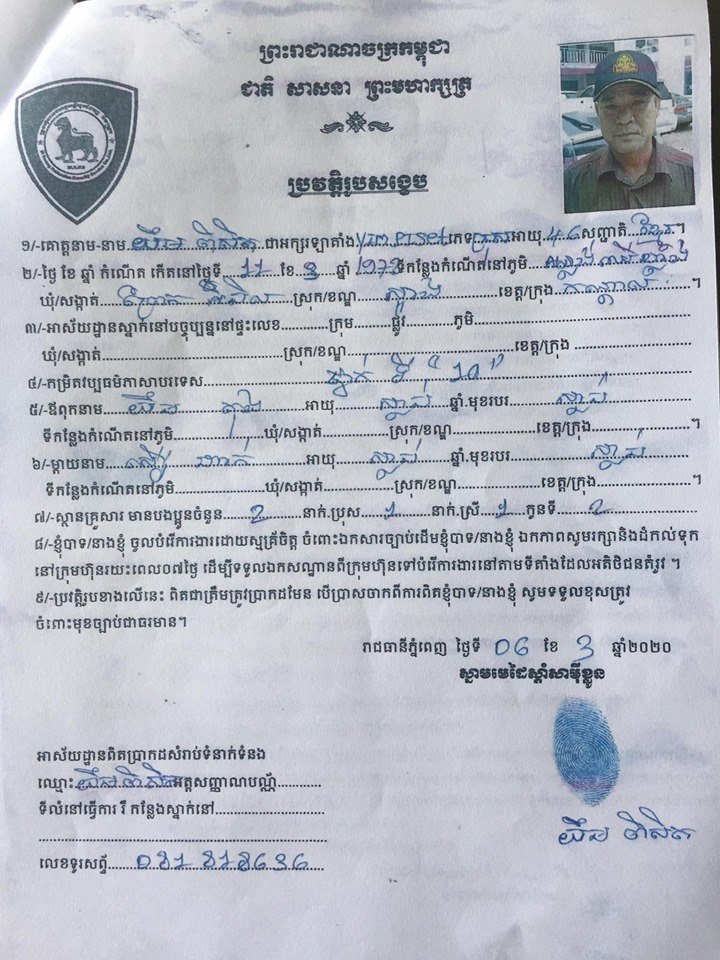 ព្រះរាជាណាចក្រកម្ពុជា
ជាតិ សាសនា ព្រះមហាក្សត្រ
ប្រវត្តិរូបសង្ខេប
១/-គោត្តនាម-នាម យឹម ពិសិត ជាអក្សរឡាតាំង Yim Piset ភេទ ប្រុស អាយុ 46 សញ្ជាតិ ខ្មែរ។
២/-ថ្ងៃ ខែ ឆ្នាំ កំណើត កើតនៅថ្ងៃទី 11 ខែ 3 ឆ្នាំ 1973 ទីកន្លែងកំណើតនៅភូមិ
ឃុំ/សង្កាត់ ស្រុក/ខណ្ឌ ស្អាង ខេត្ត/ក្រុង កណ្តាល ។
៣/-អាស័យដ្ឋានស្នាក់នៅបច្ចុប្បន្ននៅផ្ទះលេខ............ក្រុម............ផ្លូវ............ភូមិ............
ឃុំ/សង្កាត់............ស្រុក/ខណ្ឌ............ខេត្ត/ក្រុង............
៤/-កម្រិតវប្បធម៌ភាសាបរទេស ថ្នាក់ ទី "10"
៥/-ឪពុកនាម យឹម អាយុ ស្លាប់ ឆ្នាំ.មុខរបរ ស្លាប់
ទីកន្លែងកំណើតនៅភូមិ............ឃុំ/សង្កាត់............ស្រុក/ខណ្ឌ............ខេត្ត/ក្រុង............។
៦/-ម្តាយនាម អាយុ ស្លាប់ ឆ្នាំ.មុខរបរ ស្លាប់
ទីកន្លែងកំណើតនៅភូមិ............ឃុំ/សង្កាត់............ស្រុក/ខណ្ឌ............ខេត្ត/ក្រុង............។
៧/-ស្ថានគ្រួសារ មានបងប្អូនចំនួន 2 នាក់.ប្រុស 1 នាក់.ស្រី 1 កូនទី 2
៨/-ខ្ញុំបាទ/នាងខ្ញុំ ចូលបំរើការងារដោយស្មគ្រីចិត្ត ចំពោះឯកសារច្បាប់ដើមខ្ញុំបាទ/នាងខ្ញុំ ឯកភាពសូមរក្សានិងដំកល់ទុក
នៅក្រុមហ៊ុនរយះពេល០៧ថ្ងៃ ដើម្បីទទួលឯកសណ្ឋានពីក្រុមហ៊ុនទៅបំរើការងារនៅតាមទីតាំងដែលអតិថិជនតំរូវ ។
៩/-ប្រវត្តិរូបខាងលើនេះ ពិតជាត្រឹមត្រូវប្រាកដមែន បើប្រាសចាកពីការពិតខ្ញុំបាទ/នាងខ្ញុំ សូមទទួលខុសត្រូវ
ចំពោះមុខច្បាប់ជាធរមាន។
រាជធានីភ្នំពេញ ថ្ងៃទី 06 ខែ 3 ឆ្នាំ២០២០
ស្នាមមេដៃស្តាំសាម៉ីខ្លួន
អាស័យដ្ឋានពិតប្រាកដសំរាប់ទំនាក់ទំនង
ឈ្មោះ យឹម ពិសិត អត្តសញ្ញាណបណ្ណ័............
ទីលំនៅធ្វើការ រឺ កន្លែងស្នាក់នៅ............
លេខទូរសព្ទ័ 081 818636
យឹម ពិសិត